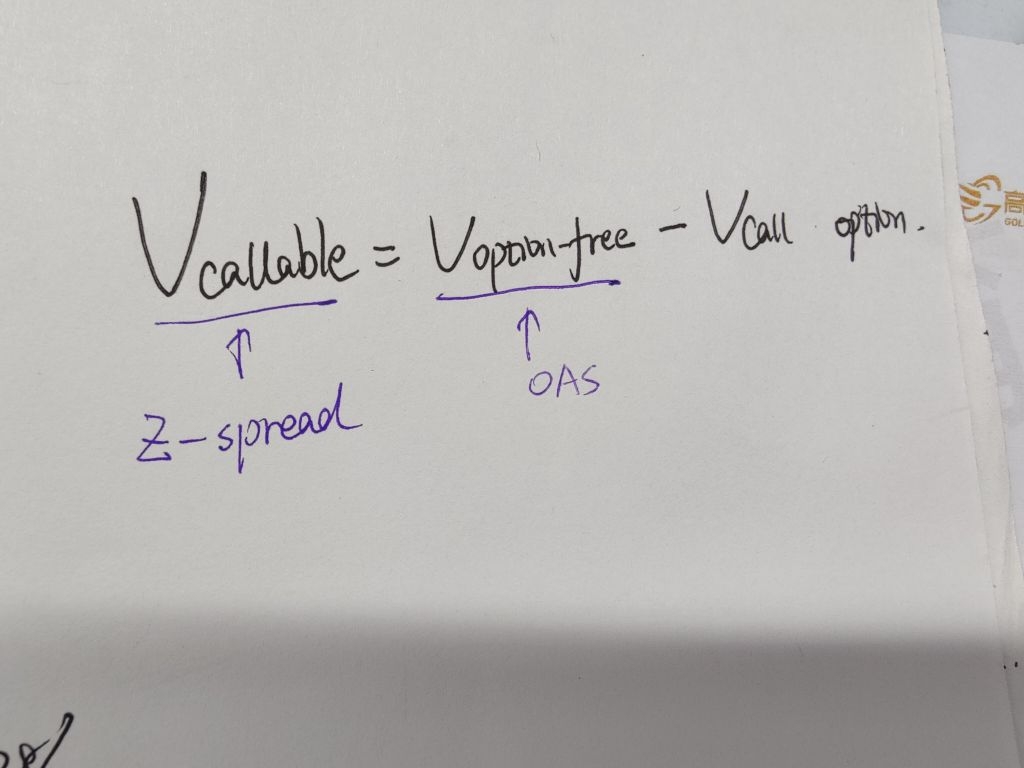 Vcallable = Voption-free - Vcall option.
↑ ↑
Z-spread OAS
高
GOL